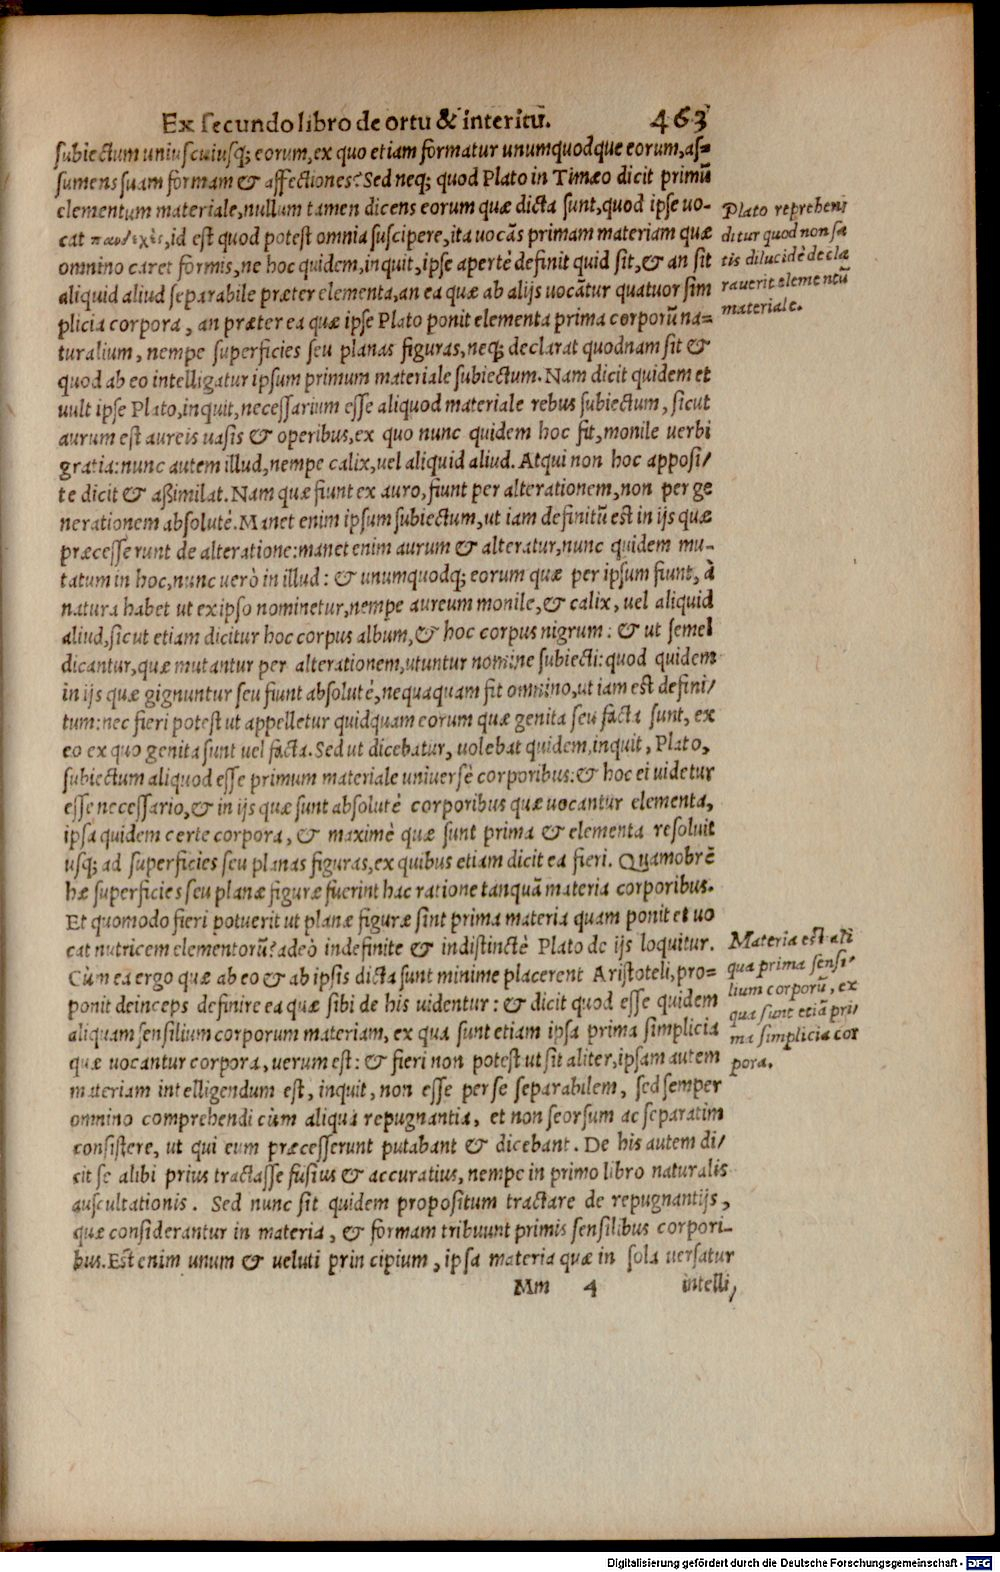 Ex secundo libro de ortu & interitũ. 463
subiectum uniuscuiusq; eorum, ex quo etiam formatur unumquodque eorum, as=
sumens suam formam & affectiones? Sed neq; quod Plato in Timæo dicit primũ
elementum materiale, nullum tamen dicens eorum quæ dicta sunt, quod ipse uo-
cat πανδεχὲς, id est quod potest omnia suscipere, ita vocãs primam materiam quæ
omnino caret formis, ne hoc quidem, inquit, ipse apertè definit quid sit, & an sit
aliquid aliud separabile præter elementa, an ea quæ ab alijs uocãtur quatuor sim
plicia corpora, an præter ea quæ ipse Plato ponit elementa prima corporũ na=
turalium, nempe superficies seu planas figuras, neq; declarat quodnam sit &
quod ab eo intelligatur ipsum primum materiale subiectum. Nam dicit quidem et
uult ipse Plato, inquit, necessarium esse aliquod materiale rebus subiectum, sicut
aurum est aureis uasis & operibus, ex quo nunc quidem hoc fit, monile uerbi
gratia: nunc autem illud, nempe calix, vel aliquid aliud. Atqui non hoc apposi/
te dicit & aßimilat. Nam quæ fiunt ex auro, fiunt per alterationem, non per ge
nerationem absolutè. Manet enim ipsum subiectum, ut iam definitũ est in ijs quæ
præcesserunt de alteratione: manet enim aurum & alteratur, nunc quidem mu-
tatum in hoc, nunc uerò in illud: & unumquodq; eorum quæ per ipsum fiunt, à
natura habet ut ex ipso nominetur, nempe aureum monile, & calix, uel aliquid
aliud, sicut etiam dicitur hoc corpus album, & hoc corpus nigrum: & ut semel
dicantur, quæ mutantur per alterationem, utuntur nomine subiecti: quod quidem
in ijs quæ gignuntur seu fiunt absolutè, nequaquam fit omnino, ut iam est defini/
tum: nec fieri potest ut appelletur quidquam eorum quæ genita seu facta sunt, ex
eo ex quo genita sunt vel facta. Sed ut dicebatur, uolebat quidem, inquit, Plato,
subiectum aliquod esse primum materiale uniuersè corporibus: & hoc ei uidetur
esse necessario, & in ijs quæ sunt absolutè corporibus quæ uocantur elementa,
ipsa quidem certe corpora, & maximè quæ sunt prima & elementa resoluit
usq; ad superficies seu planas figuras, ex quibus etiam dicit ea fieri. Quamobrẽ
hæ superficies seu planæ figuræ fuerint hac ratione tanquã materia corporibus.
Et quomodo fieri potuerit ut planæ figuræ sint prima materia quam ponit et uo
cat nutricem elementorũ? adeò indefinite & indistinctè Plato de ijs loquitur.
Cùm ea ergo quæ ab eo & ab ipsis dicta sunt minime placerent Aristoteli, pro=
ponit deinceps definire ea quæ sibi de his uidentur: & dicit quod esse quidem
aliquam sensilium corporum materiam, ex qua sunt etiam ipsa prima simplicia
quæ uocantur corpora, uerum est: & fieri non potest ut sit aliter, ipsam autem
materiam intelligendum est, inquit, non esse per se separabilem, sed semper
omnino comprehendi cùm aliqua repugnantia, et non seorsum ac separatim
consistere, ut qui eum præcesserunt putabant & dicebant. De his autem di/
cit se alibi prius tractasse fusius & accuratius, nempe in primo libro naturalis
auscultationis. Sed nunc sit quidem propositum tractare de repugnantijs,
quæ considerantur in materia, & formam tribuunt primis sensilibus corpori-
bus. Est enim unum & ueluti principium, ipsa materia quæ in sola uersatur
Mm 4 intelli/
Plato reprehenj
ditur quod non sa
tis dilucidè decla
rauerit elementũ
materiale.
Materia est ali
qua prima sensi/
lium corporũ, ex
qua sunt etiã pri/
ma simplicia cor
pora.
Digitalisierung gefördert durch die Deutsche Forschungsgemeinschaft - DFG